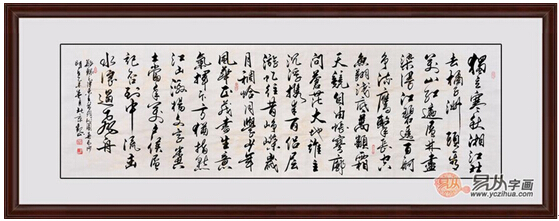 獨立寒秋湘江北
去橘子洲頭看
萬山紅遍層林盡
染漫江碧透百舸
爭流鷹擊長空
魚翔淺底萬類霜
天競自由悵寥廓
問蒼茫大地誰主
沉浮攜來百侶曾
游憶往昔崢嶸歲
月稠恰同學少年
風華正茂書生意
氣揮斥方遒指點
江山激揚文字糞
土當年萬戶侯曾
記否到中流擊
水浪遏飛舟
易从字画